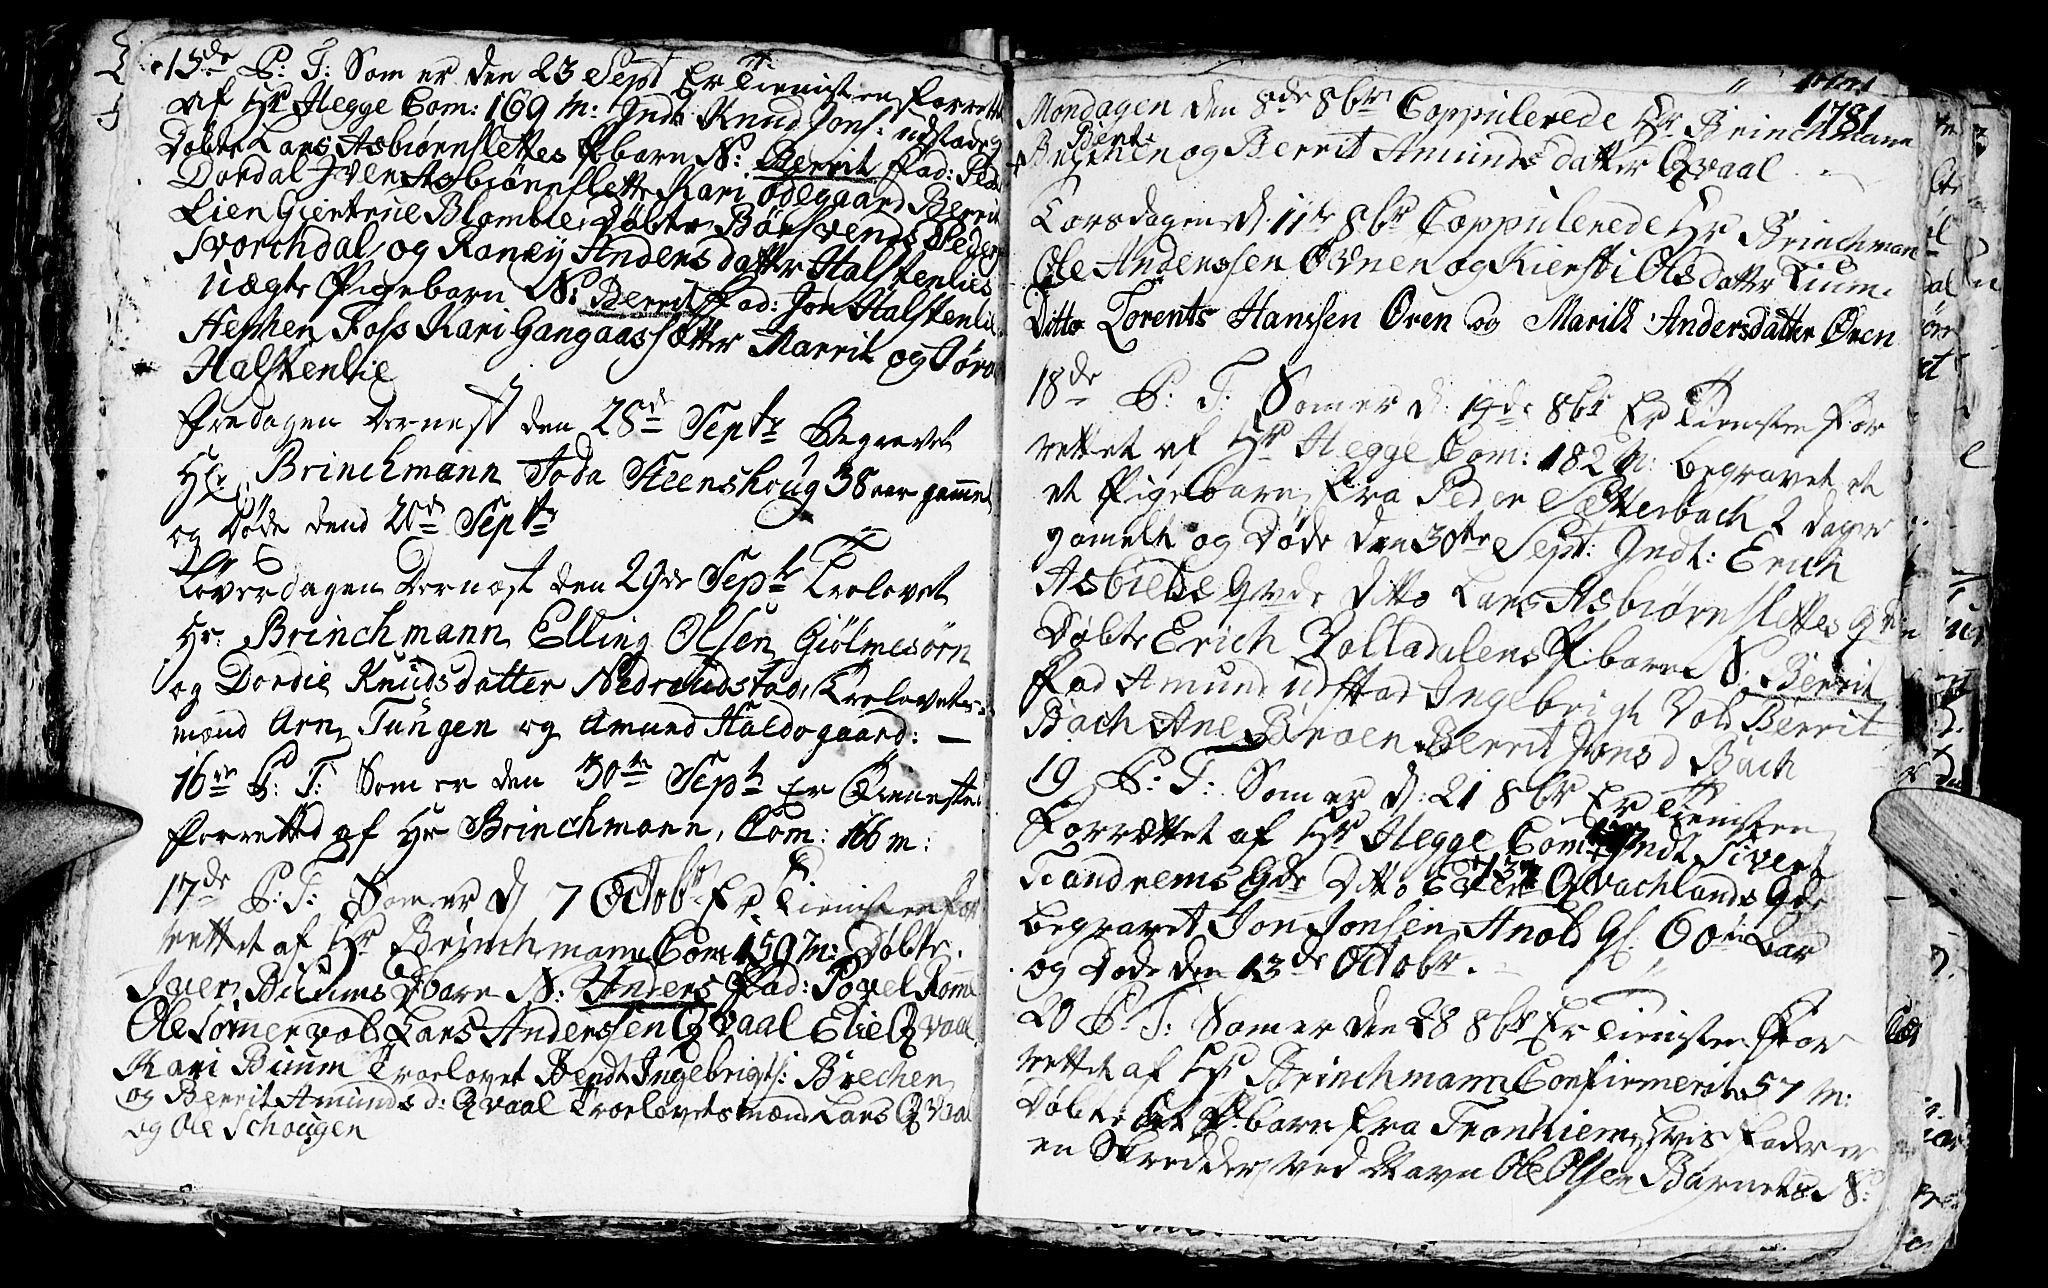 15de P: T: Som er den 23 Sept Er Tienisten forrett
af Hr Hegge Com: 169 m: Indt: Knud Jons: udstadeg
Døbte Lars Asbiørnslettes Pbarn N: Berrit Fad: Peder
Dordal Iven Asbiørnslette Kari Ødegaard Berrit
Lien Giertrue Blomlie Døbte Børsvends Peder
Svorchdal og Raney Anders datter Halstenlies
uægte Pigebarn N: Berrit Fad: Jon Halstenlie
Hennen Foss Kari Gangaassætter Marrit og Jøro
Halstenlie
Fredagen Dernest den 28de Septr Begravet
Hr. Brinchmann Joda Steenshoug 38 aar gammel
og Døde dend 20de Septr
Løverdagen Dernæst den 29de Septr Trolovet
Hr. Brinchmann Elling Olsen Giølmesørn
og Dordie Knudsdatter Nedreudstad, Troloves
mænd Arn Tungen og Amund Haldogaard: —
16de P: T: Som er den 30te Septr Er Tienesten
forretted af Hr Brinchmann, Com: 166 m:
17de P: T: Som er d 7 Octobr Er Tienisten for
rettet af Hr Brinchmann Com 159 m: Døbte
Iver Buums Dbarn N: Anders Fad: Povel Romm
Ole Somervold Lars Anderssen Qvaal Elie Qvaal
Kari Buum Troelovet Bendt Ingebrigts: Brechen
og Berrit Amunds d: Qvaal Troelovetsmænd Lars Qvaal
og Ole Schougen
1781
Mondagen den 8de 8br Coppulerede Hr Brinchmann
Bent
Brechen og Berrit Amunds datter Qvaal
Torsdagen d. 11te 8br Coppulerede Hr Brinchman
Ole Anderssen Øvnen og Kiersti Olsdatter Lium
Ditto Lorents Hanssen Øren og Marit Andersdatter Øren
18de P: T: Som er d: 14de 8br Er Tiensten For
rettet af Hr Hegge Com: 182 m: begravet et
et Pigebarn fra Peder Sætterbach 2 dager
gamelt og Døde den 30te Sept: Indt: Erich
Asbiells Qvde Ditto Lars Asbiørnslettes Qvin
Døbte Erich Volladalens P:barn N: Berrit
Fad Amund udstad Ingebrigt Vold Berrit
Bach Ane Broen Berrit Jons d Bach
19 P: T: Som er d: 21 8br Er Tienisten
Forrættet af Hr Hegge Com: 137 Indt Sivert
Tandnems Qde Ditto Qvachlands Qde
begravet Jon Jonsen Anold Gl. 60 Aar
og Døde den 13de Octobr.
20 P: T: Som er den 28 8br Er Tienisten For
rettet af Hr Brinchmann Confirmerit 57 m:
Døbte et P:barn fra Tronhiem Hvis fader er
en Skredder ved Navn Ole Olsen Barnets N: